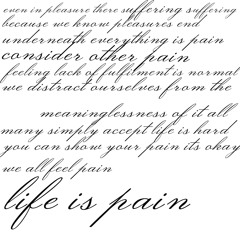 even in pleasure there suffering suffering
because we know pleasures end
underneath everything is pain
consider other pain
feeling lack of fulfilment is normal
we distract ourselves from the
meaninglessness of it all
many simply accept life is hard
you can show your pain its okay
we all feel pain
life is pain